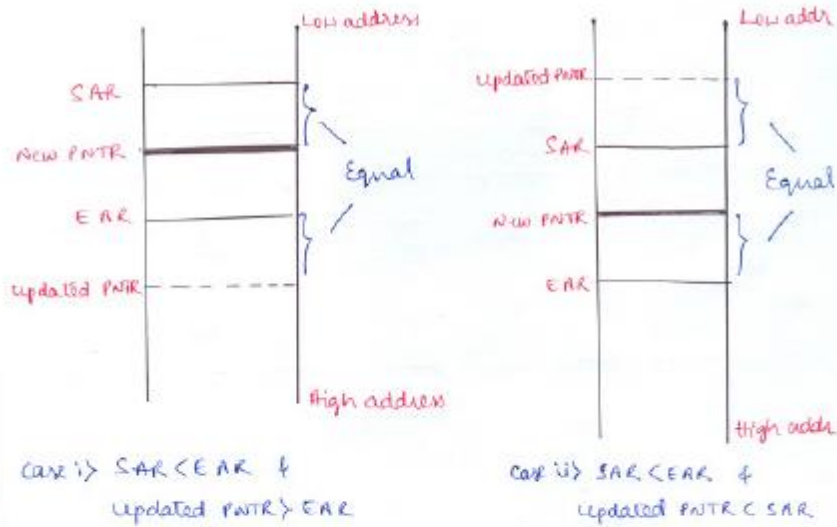 Low address
SAR
New PNTR
Equal
EAR
Updated PNTR
High address
Case i> SAR < EAR &
Updated PNTR > EAR
Low addr
Updated PNTR
SAR
Equal
New PNTR
EAR
High addr
Case ii> SAR < EAR &
Updated PNTR < SAR